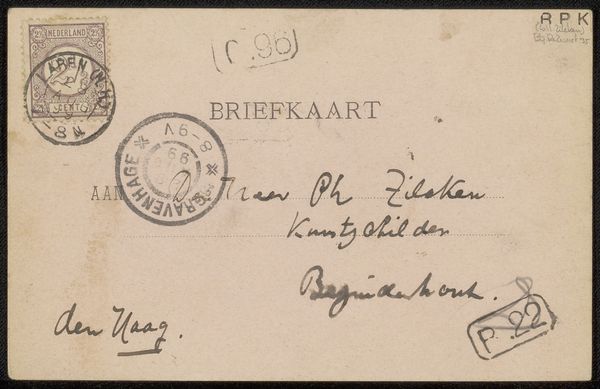 R P K
2½ NEDERLAND 2½
CENT
LAREN (N.H.)
P. 96
BRIEFKAART
'S GRAVENHAGE
8-9V
99
AAN De Heer Ph Zilcken
Kunstschilder
Bezuidenhout.
den Haag.
P. 22